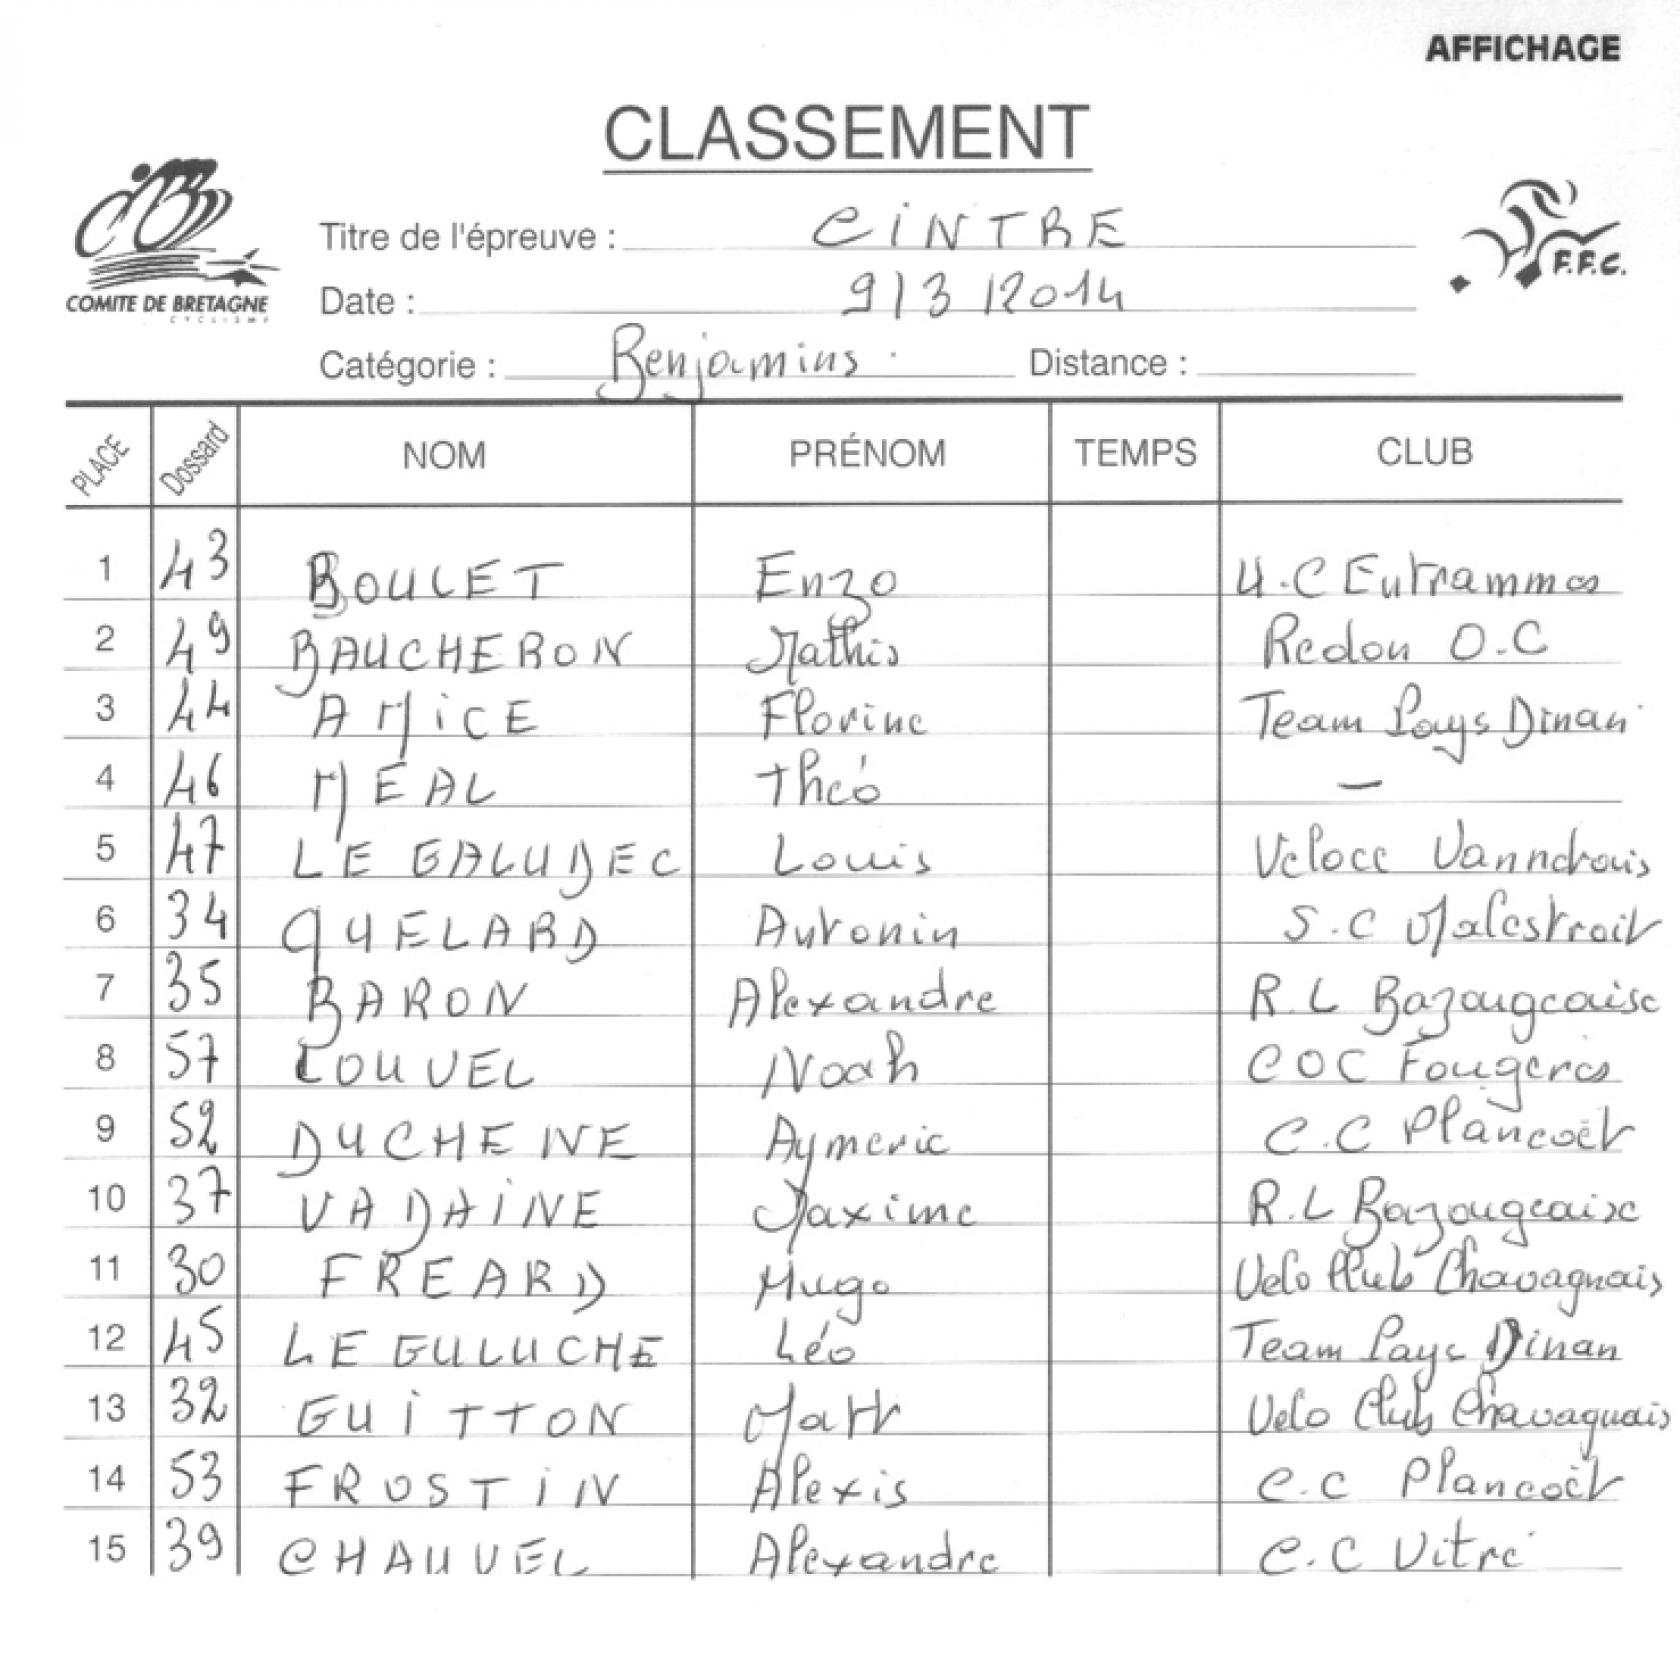 AFFICHAGE
CLASSEMENT
COMITE DE BRETAGNE
CYCLISME
F.F.C.
Titre de l'épreuve : CINTRE
Date : 9/3/2014
Catégorie : Benjamins. Distance :
PLACE Dossard NOM PRÉNOM TEMPS CLUB
1 43 BOULET Enzo U.C Entrammes
2 49 BAUCHERON Mathis Redon O.C
3 44 AMICE Florine Team Pays Dinan
4 46 MEAL Théo —
5 47 LE GALUDEC Louis Veloce Vannetais
6 34 QUELARD Antonin S.C Malestroit
7 35 BARON Alexandre R.L Bazougeaise
8 57 COUVEL Noah COC Fougeres
9 52 DUCHENE Aymeric C.C Plancoët
10 37 VADAINE Maxime R.L Bazougeaise
11 30 FREARD Hugo Velo Club Chavagnais
12 45 LE GULUCHE Léo Team Pays Dinan
13 32 GUITTON Matt Velo Club Chavagnais
14 53 FROSTIN Alexis C.C Plancoët
15 39 CHAUVEL Alexandre C.C Vitré